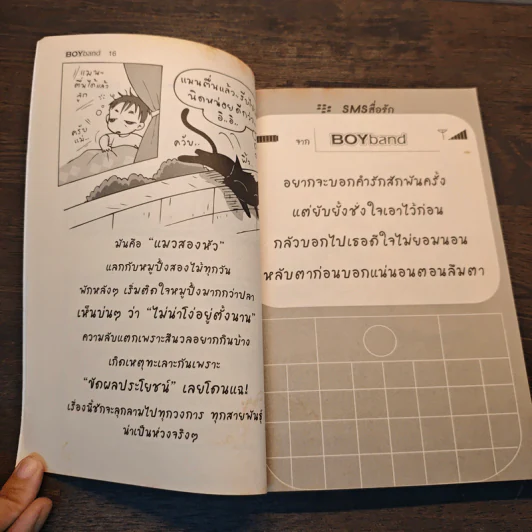 BOYband 16
แมนะ
ตื่นได้แล้ว
ลูก
ครับ
แม่..
แมนตื่นแล้ว
นิดหน่อยดีกว่า
อิ..อิ..
ควับ..
มันคือ "แมวสองหัว"
แลกกับหมูปิ้งสองไม้ทุกวัน
พักหลังๆ เริ่มติดใจหมูปิ้งมากกว่าปลา
เห็นบ่นๆ ว่า "ไม่น่าโง่อยู่ตั้งนาน"
ความลับแตกเพราะสีนวลอยากกินบ้าง
เกิดเหตุทะเลาะกันเพราะ
"ขัดผลประโยชน์" เลยโดนแฉ!
เรื่องนี้ชักจะลุกลามไปทุกวงการ ทุกสายพันธุ์
น่าเป็นห่วงจริงๆ
SMSสื่อรัก
จาก BOYband
อยากจะบอกคำรักสักพันครั้ง
แต่ยับยั้งชั่งใจเอาไว้ก่อน
กลัวบอกไปเธอดีใจไม่ยอมนอน
หลับตาก่อนบอกแน่นอนตอนลืมตา